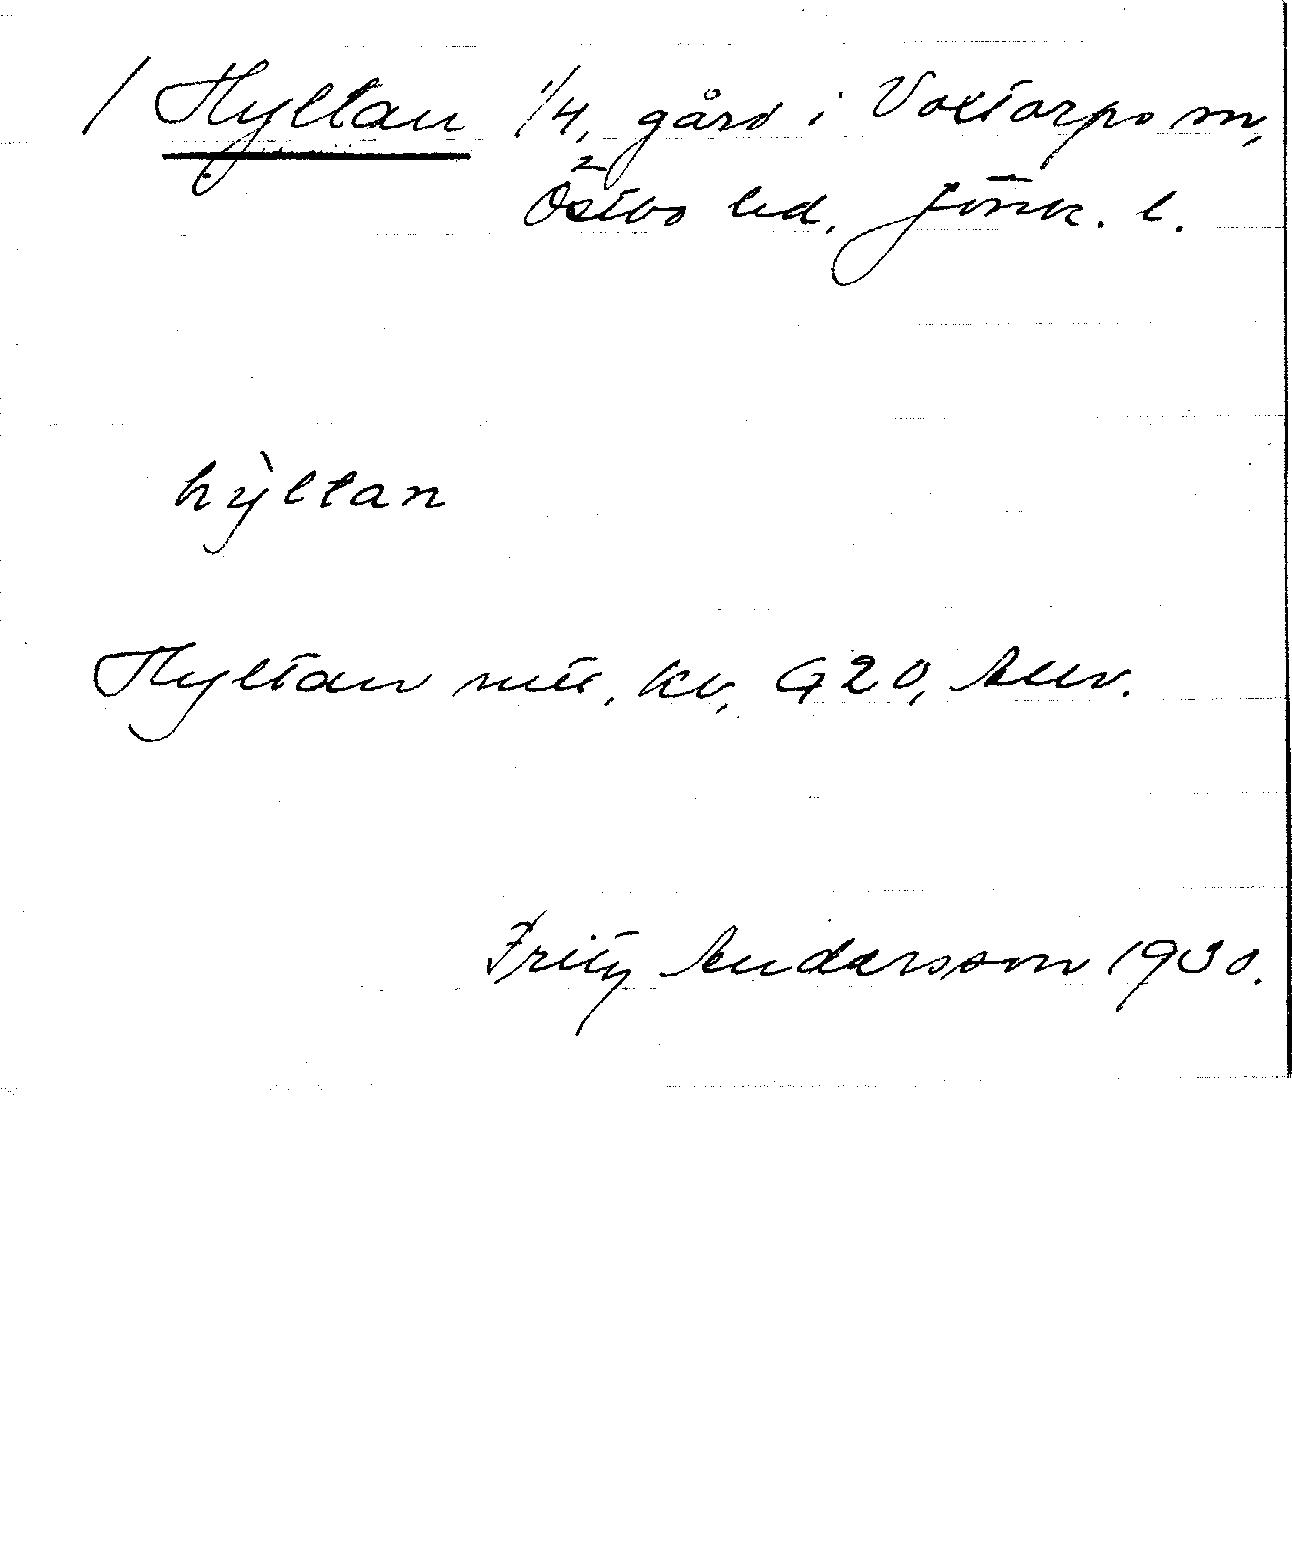 / Hyltan 1/4, gård i Voxtorps sn,
Östbo hd. Jönk. l.
hỳltan
Hyltan mtt. kv, G20, Allv.
Fritz Andersson 1930.